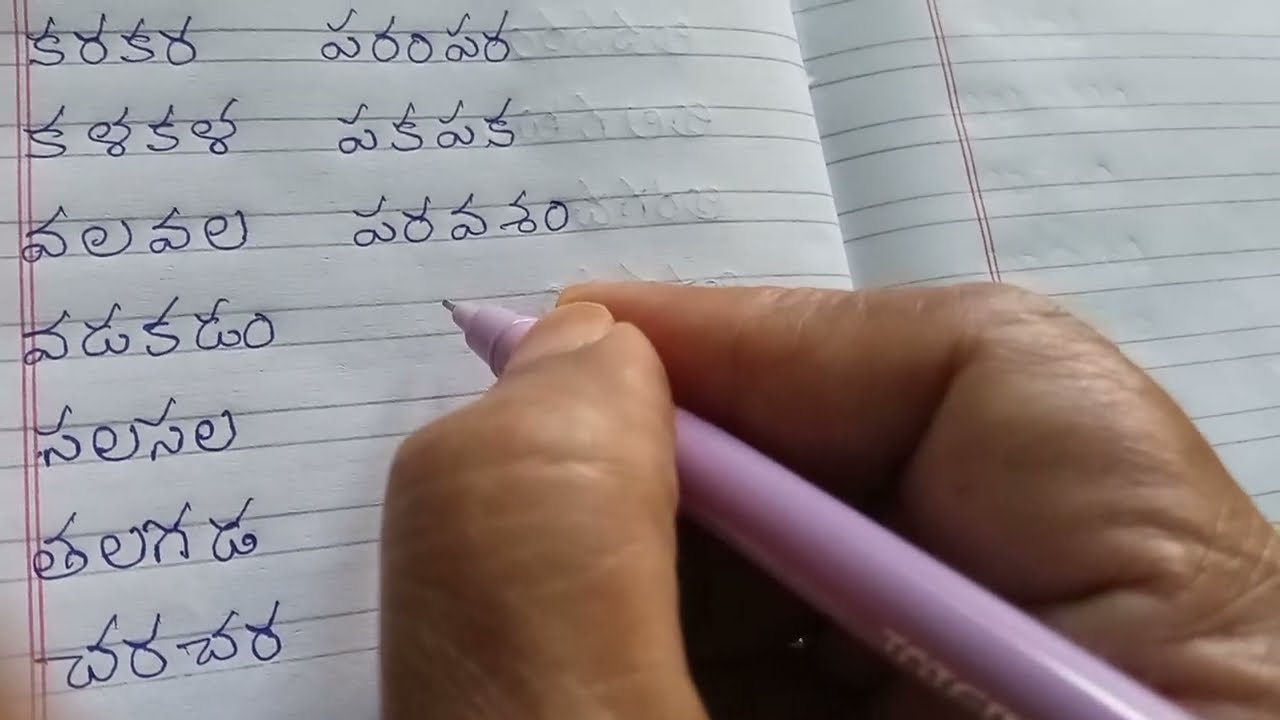 కరకర పరంపర
కళకళ పకపక
వలవల పరవశం
వడకడం
సలసల
తలగడ
చరచర